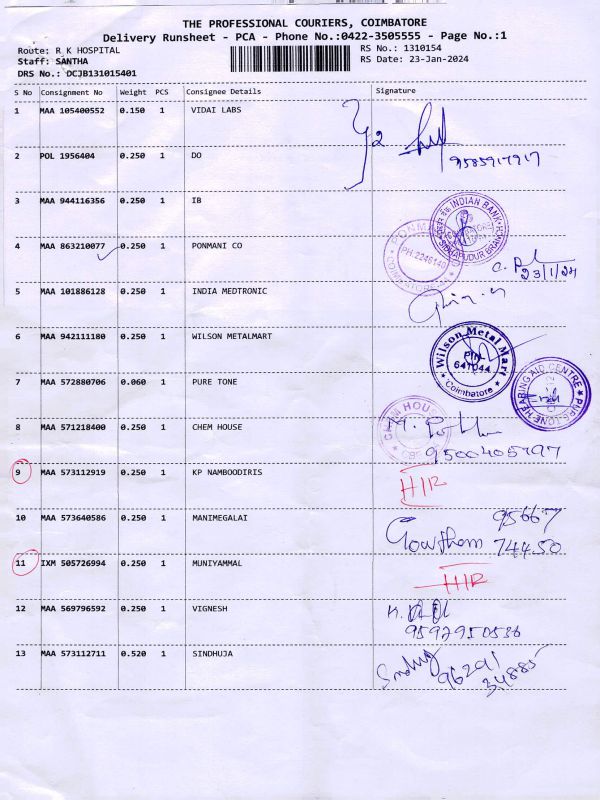 THE PROFESSIONAL COURIERS, COIMBATORE
Delivery Runsheet - PCA - Phone No.:0422-3505555 - Page No.:1
Route: R K HOSPITAL
RS No.: 1310154
Staff: SANTHA
RS Date: 23-Jan-2024
DRS No.: DCJB131015401
S No Consignment No Weight PCS Consignee Details Signature
1 MAA 105400552 0.150 1 VIDAI LABS
2 POL 1956404 0.250 1 DO
9585917917
3 MAA 944116356 0.250 1 IB
INDIAN BANK
SIDHAPUDUR BRANCH
4 MAA 863210077 0.250 1 PONMANI CO
PH:2246140
23/1/24
5 MAA 101886128 0.250 1 INDIA MEDTRONIC
6 MAA 942111180 0.250 1 WILSON METALMART
Wilson Metal Mart
PIN
641044
Coimbatore
7 MAA 572880706 0.060 1 PURE TONE
PURE TONE HEARING AID CENTRE
8 MAA 571218400 0.250 1 CHEM HOUSE
HOUSE
9500405797
9 MAA 573112919 0.250 1 KP NAMBOODIRIS
H/R
10 MAA 573640586 0.250 1 MANIMEGALAI
Gowtham 95667
74450
11 IXM 505726994 0.250 1 MUNIYAMMAL
H/R
12 MAA 569796592 0.250 1 VIGNESH
9592950536
13 MAA 573112711 0.520 1 SINDHUJA
Sindhuja 96291
34885